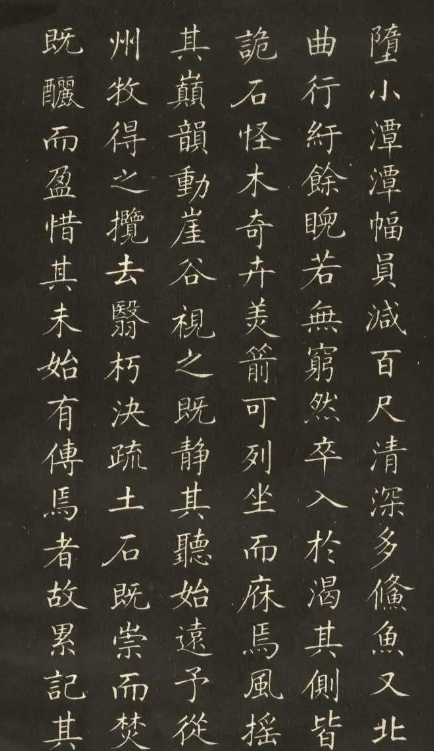 墮小潭潭幅員減百尺清深多鯈魚又北
曲行紆餘睨若無窮然卒入於渴其側皆
詭石怪木奇卉美箭可列坐而庥焉風搖
其巔韻動崖谷視之既靜其聽始遠予從
州牧得之攬去翳朽決疏土石既崇而焚
既釃而盈惜其未始有傳焉者故累記其